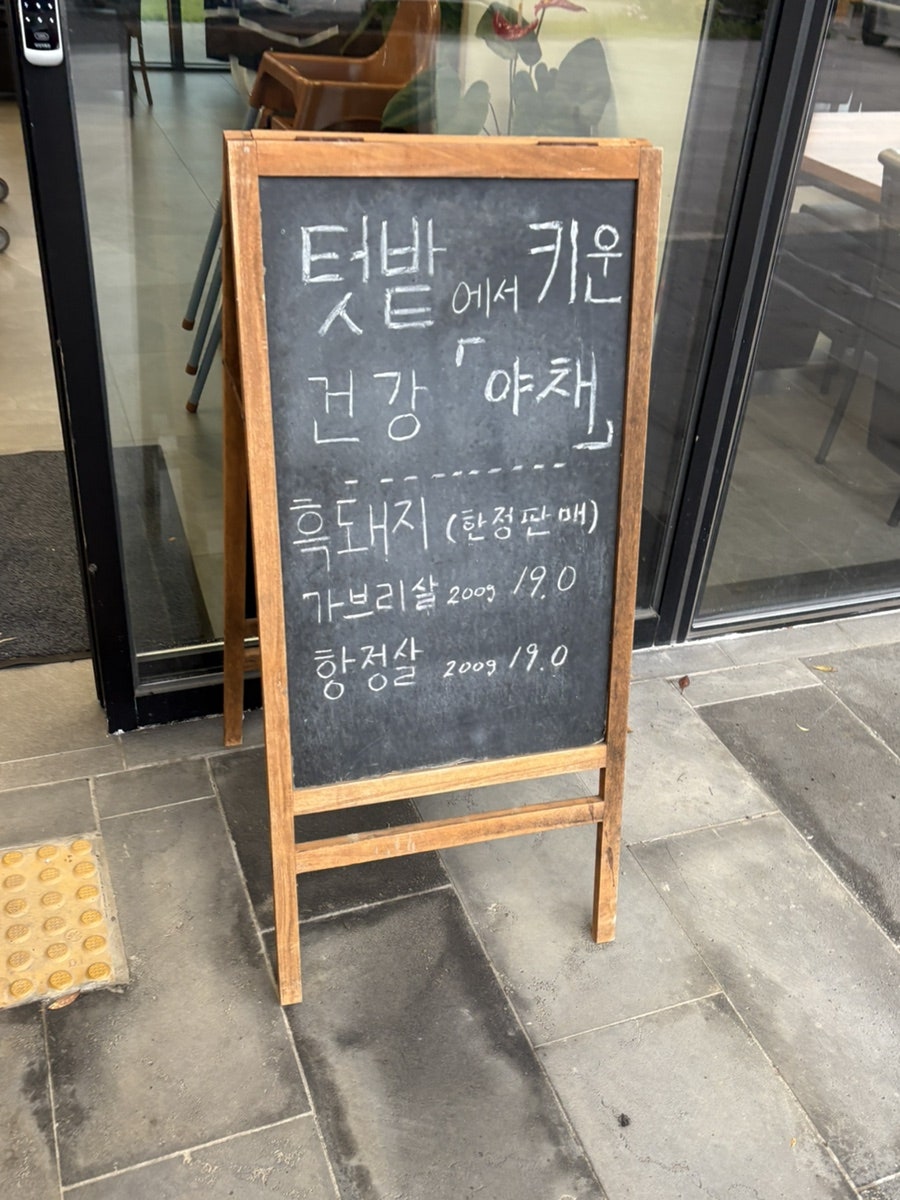 텃밭에서 키운
건강 「야채」
흑돼지 (한정판매)
가브리살 200g 19.0
항정살 200g 19.0